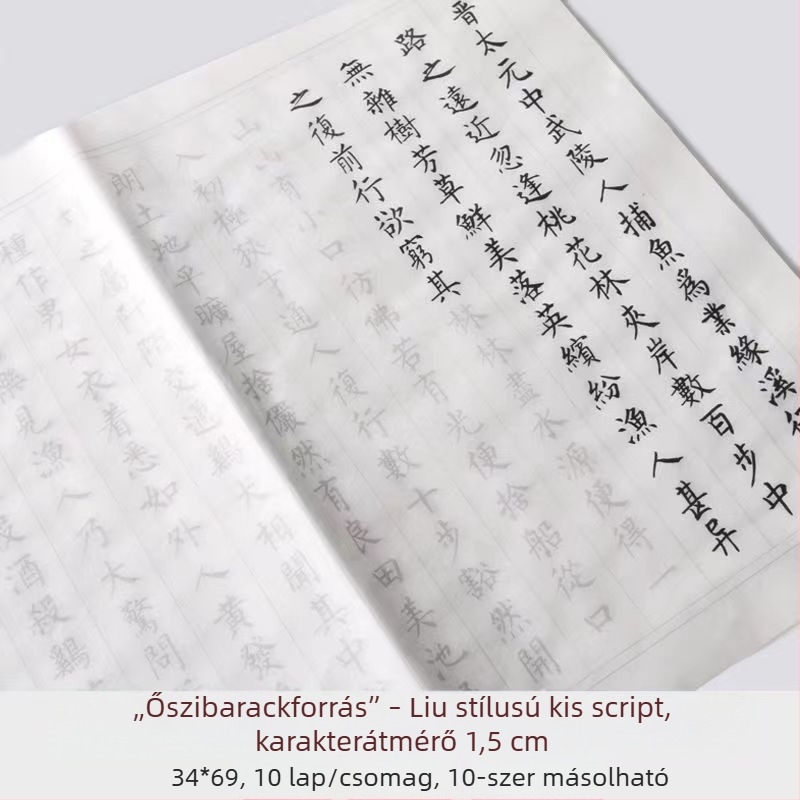 晋太元中武陵人捕魚爲業緣溪行
路之遠近忽逢桃花林夾岸數百步中
無雜樹芳草鮮美落英繽紛漁人甚异
之復前行欲窮其林林盡水源便得一
山山有小口彷佛若有光便捨船從口
入初極狹才通人復行數十步豁然開
朗土地平曠屋捨儼然有良田美池
之屬阡陌交通鷄犬相聞其中
種作男女衣着悉如外人黃發
樂見漁人乃大驚問
酒殺鷄
„Őszibarackforrás” – Liu stílusú kis script,
karakterátmérő 1,5 cm
34*69, 10 lap/csomag, 10-szer másolható